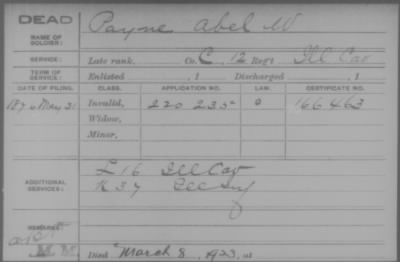 DEAD
NAME OF SOLDIER: Payne Abel W
SERVICE: Late rank, Co. C, 12 Reg't Ill Cav
TERM OF SERVICE: Enlisted , 1 Discharged , 1
DATE OF FILING. CLASS. APPLICATION NO. LAW. CERTIFICATE NO.
May 21 Invalid, 220 235 166 463
Widow,
Minor,
L 16 Ill Cav
ADDITIONAL SERVICES: K 37 Ill Inf
REMARKS:
Died March 8, 1923, at